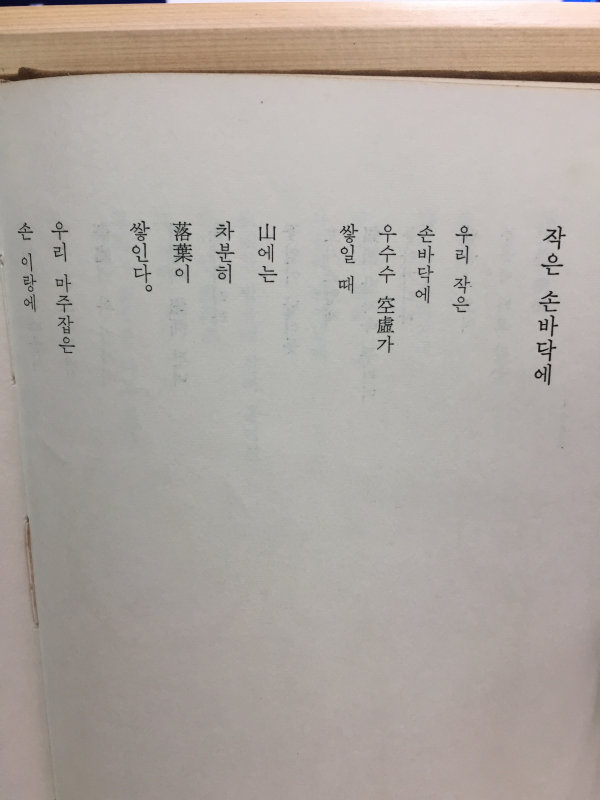 작은 손바닥에
우리 작은
손바닥에
우수수 空虛가
쌓일 때
山에는
차분히
落葉이
쌓인다。
우리 마주잡은
손 이랑에